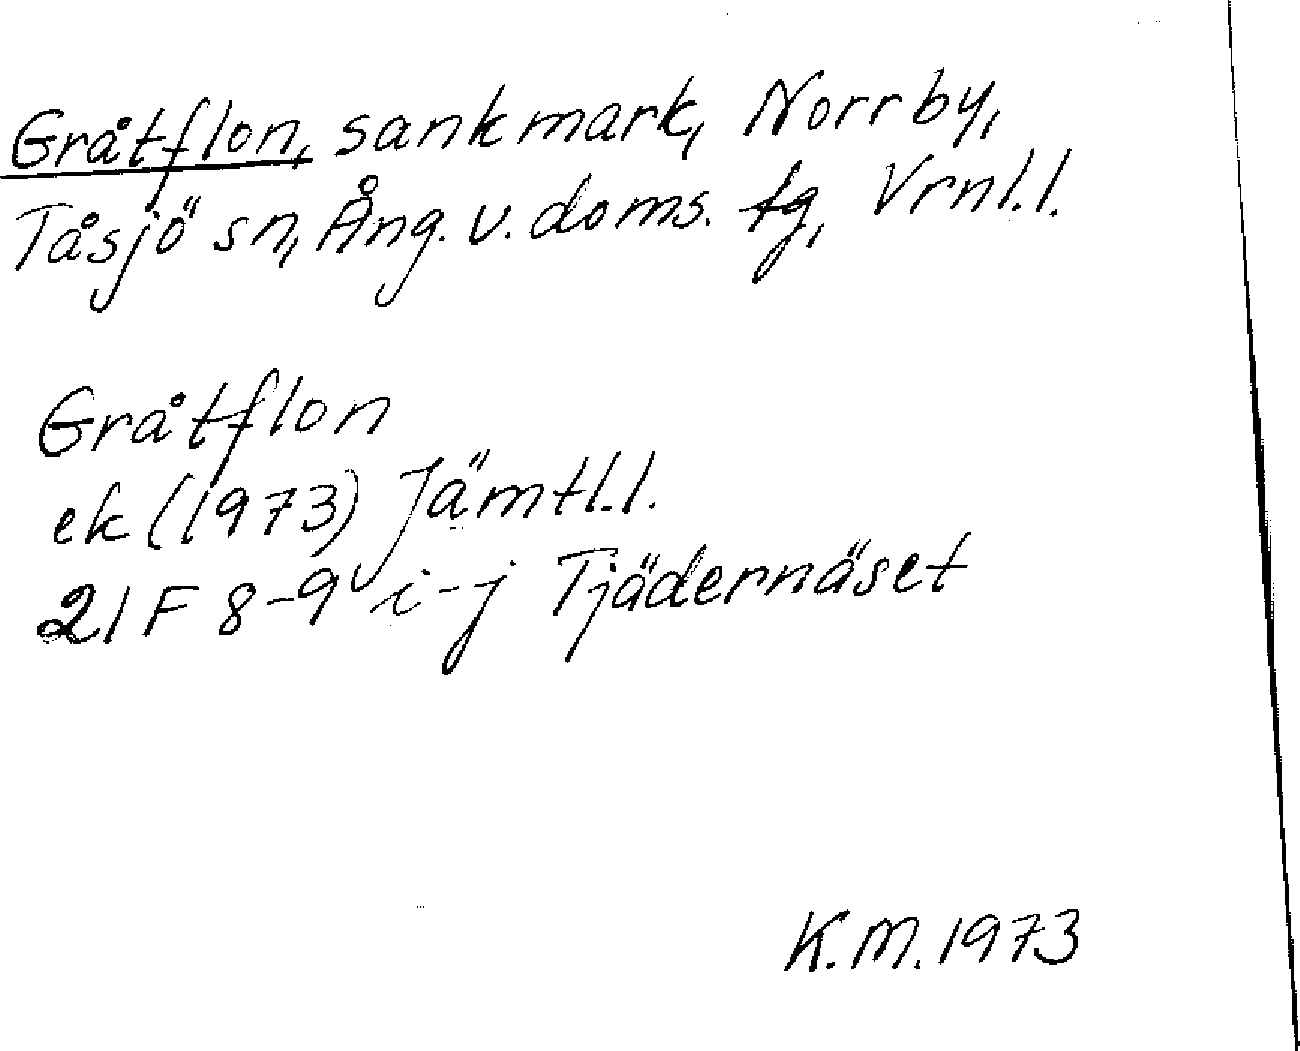 Gråtflon, sankmark, Norrby,
Tåsjö sn, Ång. v. doms. tg, Vrnl.l.
Gråtflon
ek (1973) Jämtl.l.
21F 8-9 i-j Tjädernäset
K.M. 1973